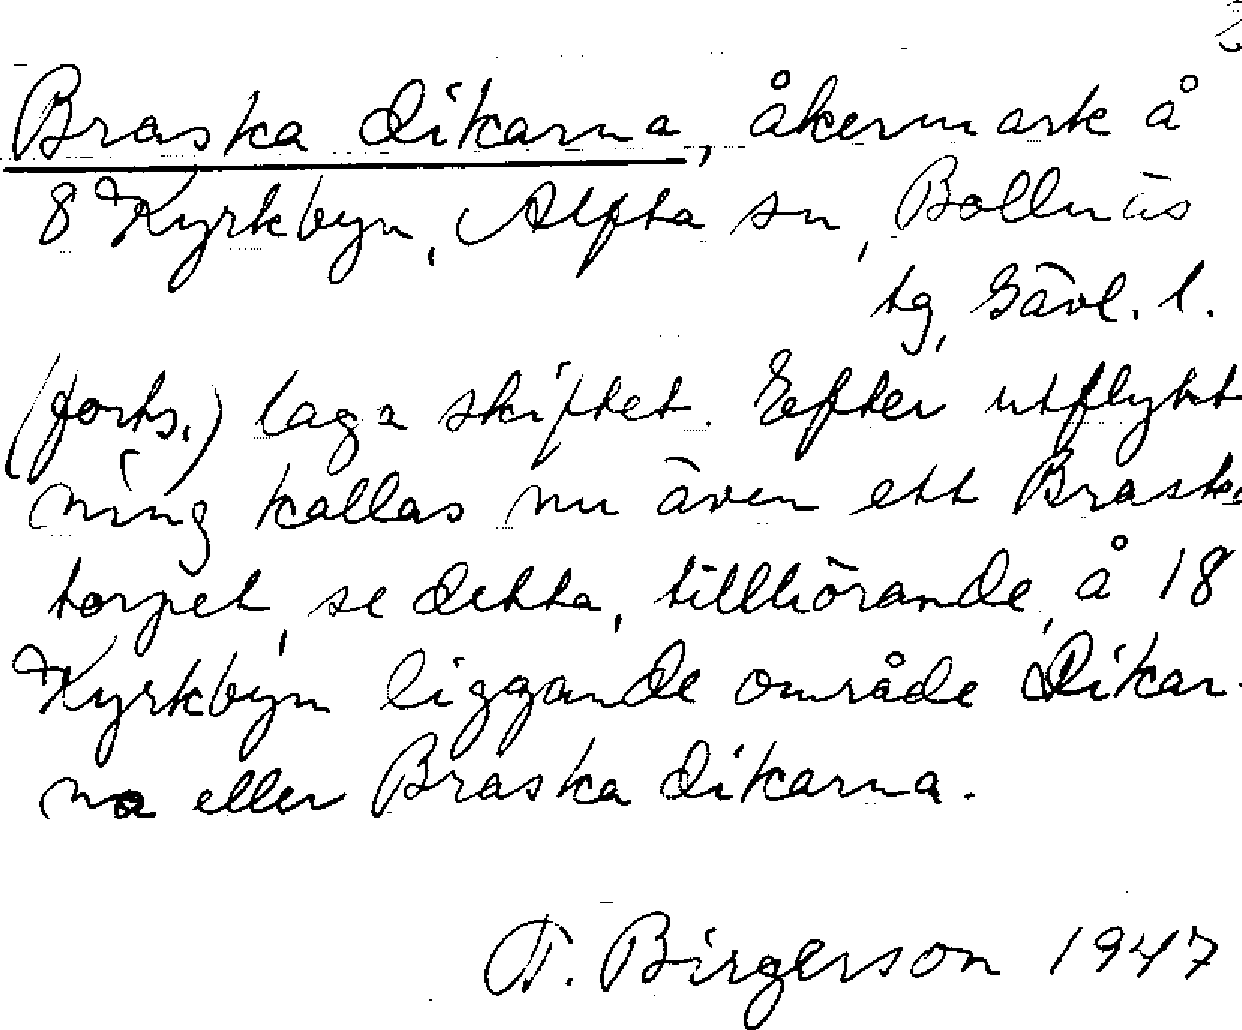 2
Braska dikarna, åkermark å
8 Kyrkbyn, Alfta sn, Bollnäs
tg, Gävl. l.
(forts.) laga skiftet. Efter utflytt
ning kallas nu även ett Braska
torpet, se detta, tillhörande, å 18
Kyrkbyn liggande område Dikar-
na eller Braska dikarna.
T. Birgerson 1947